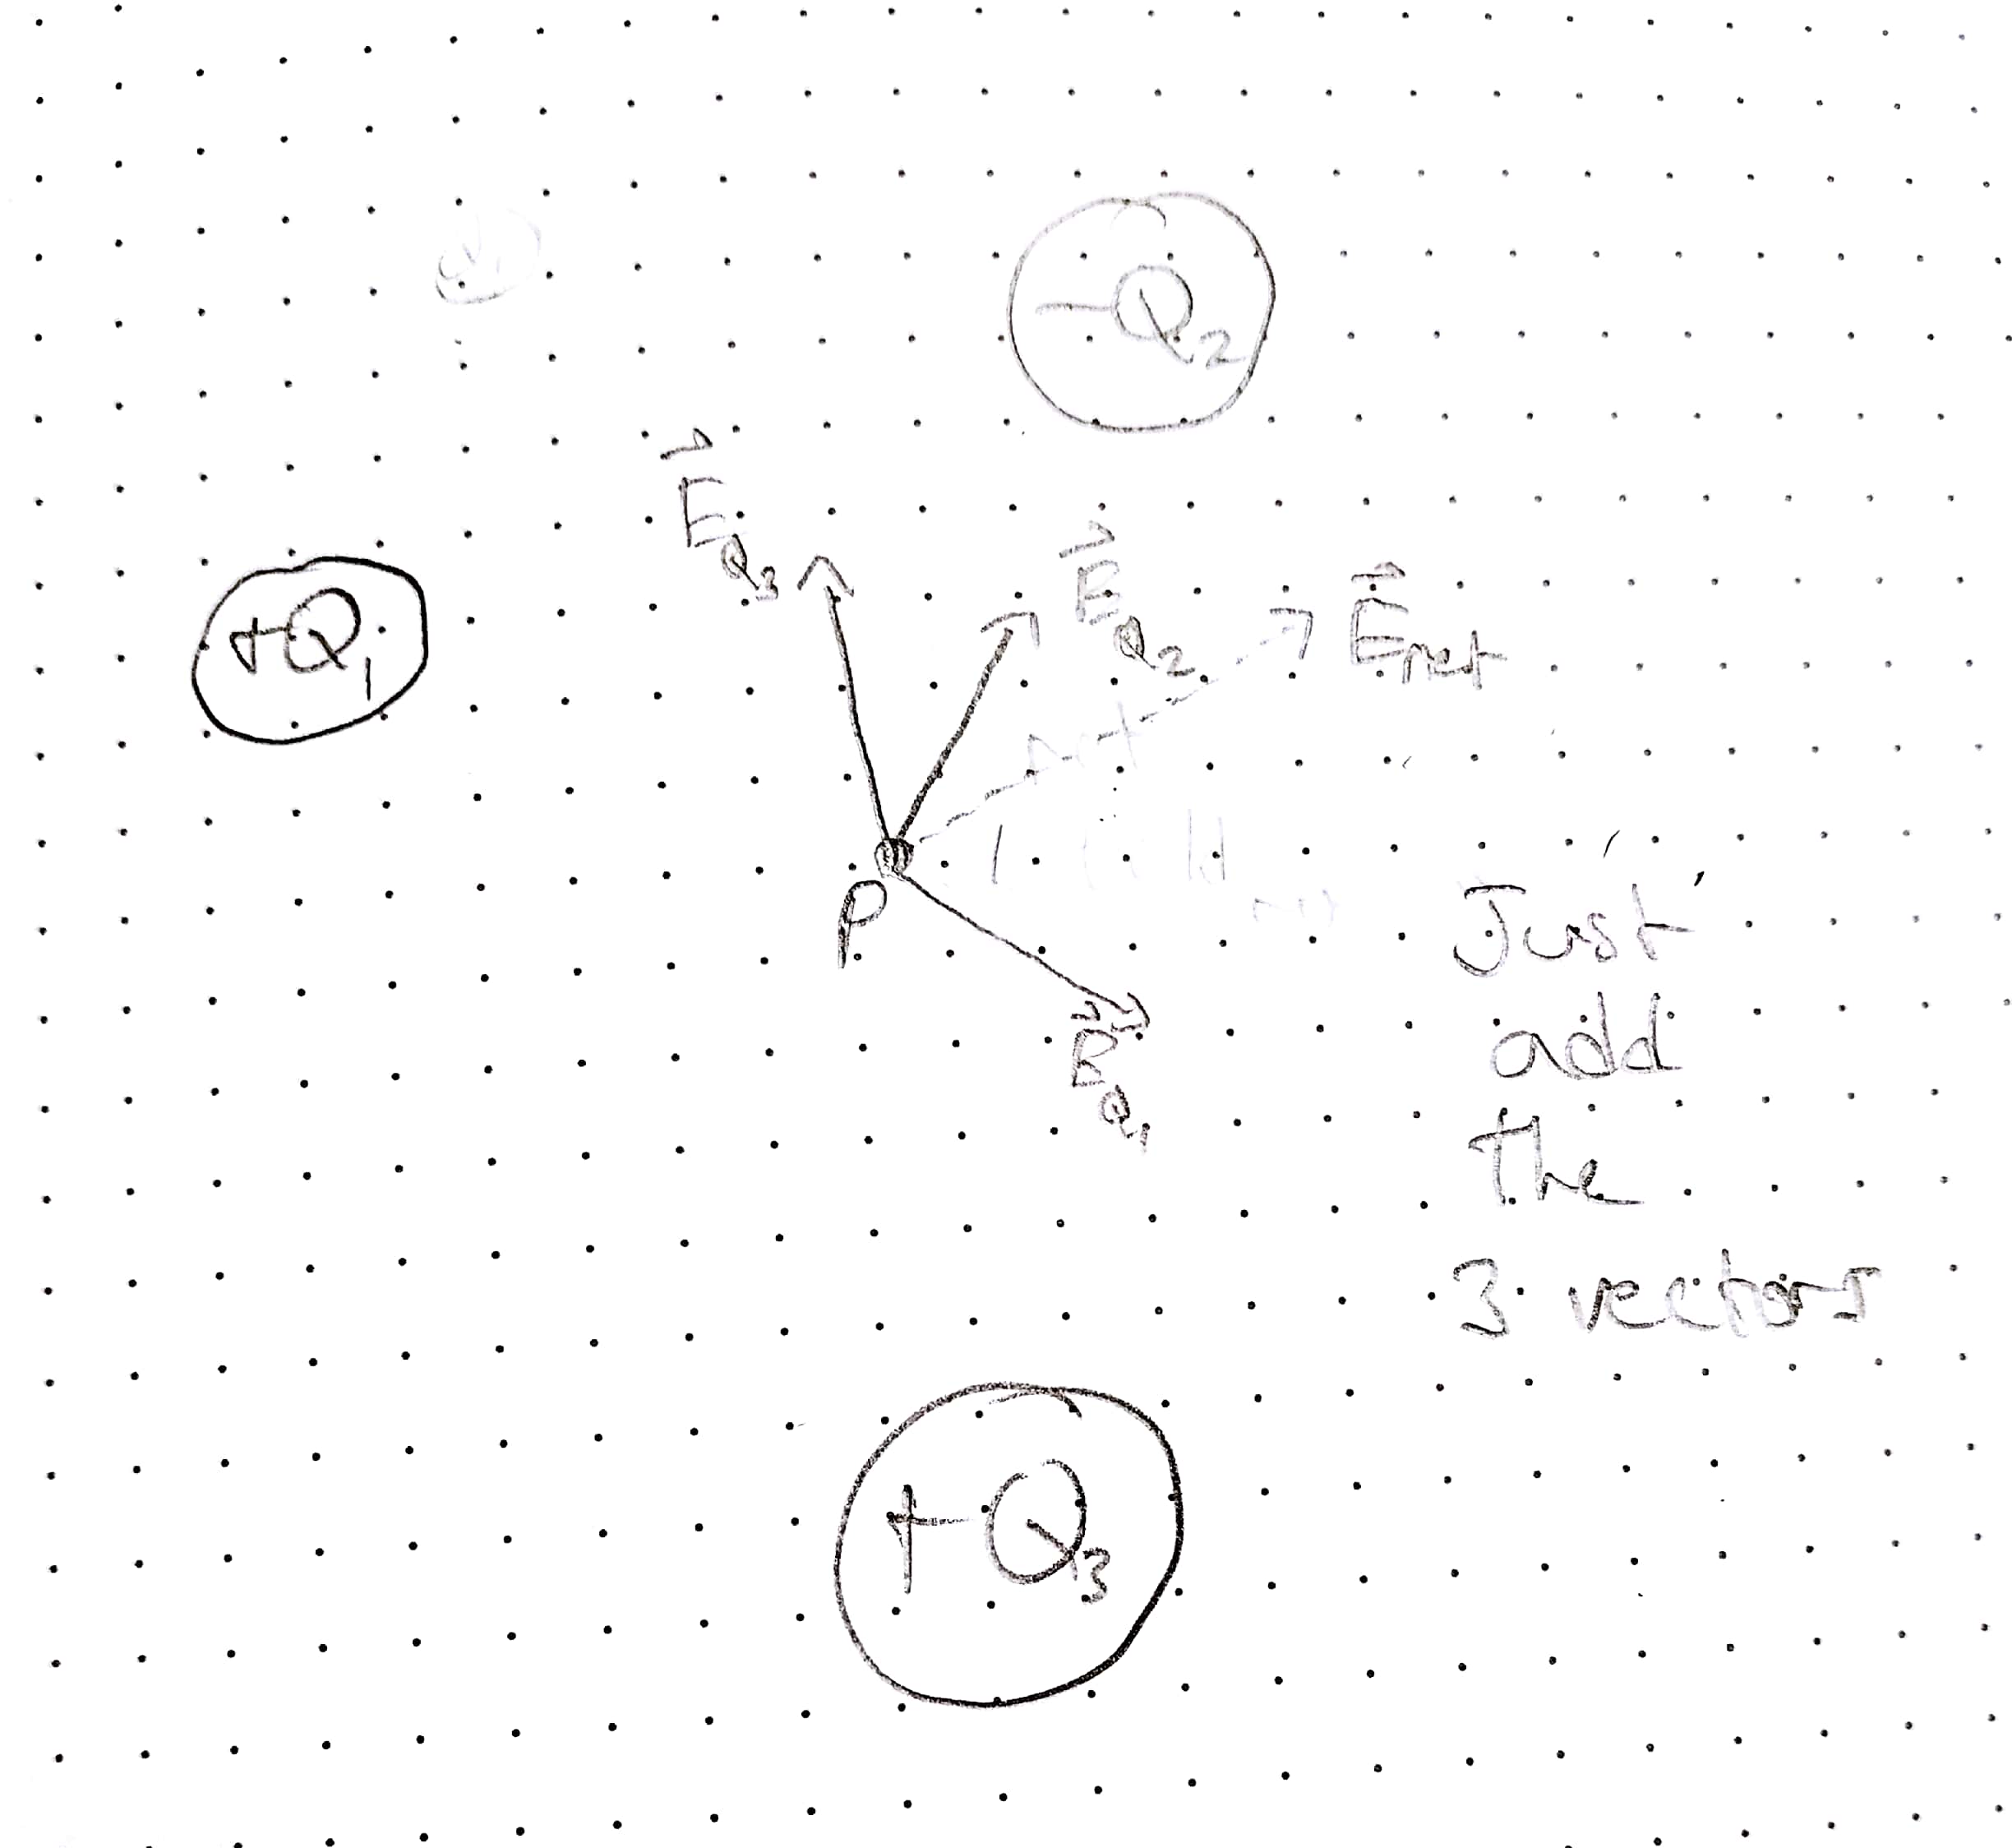 -Q₂
E⃗_Q₃
E⃗_Q₂
E⃗_net
+Q₁
P
E⃗_Q₁
Just
add
the
3 vectors
+Q₃